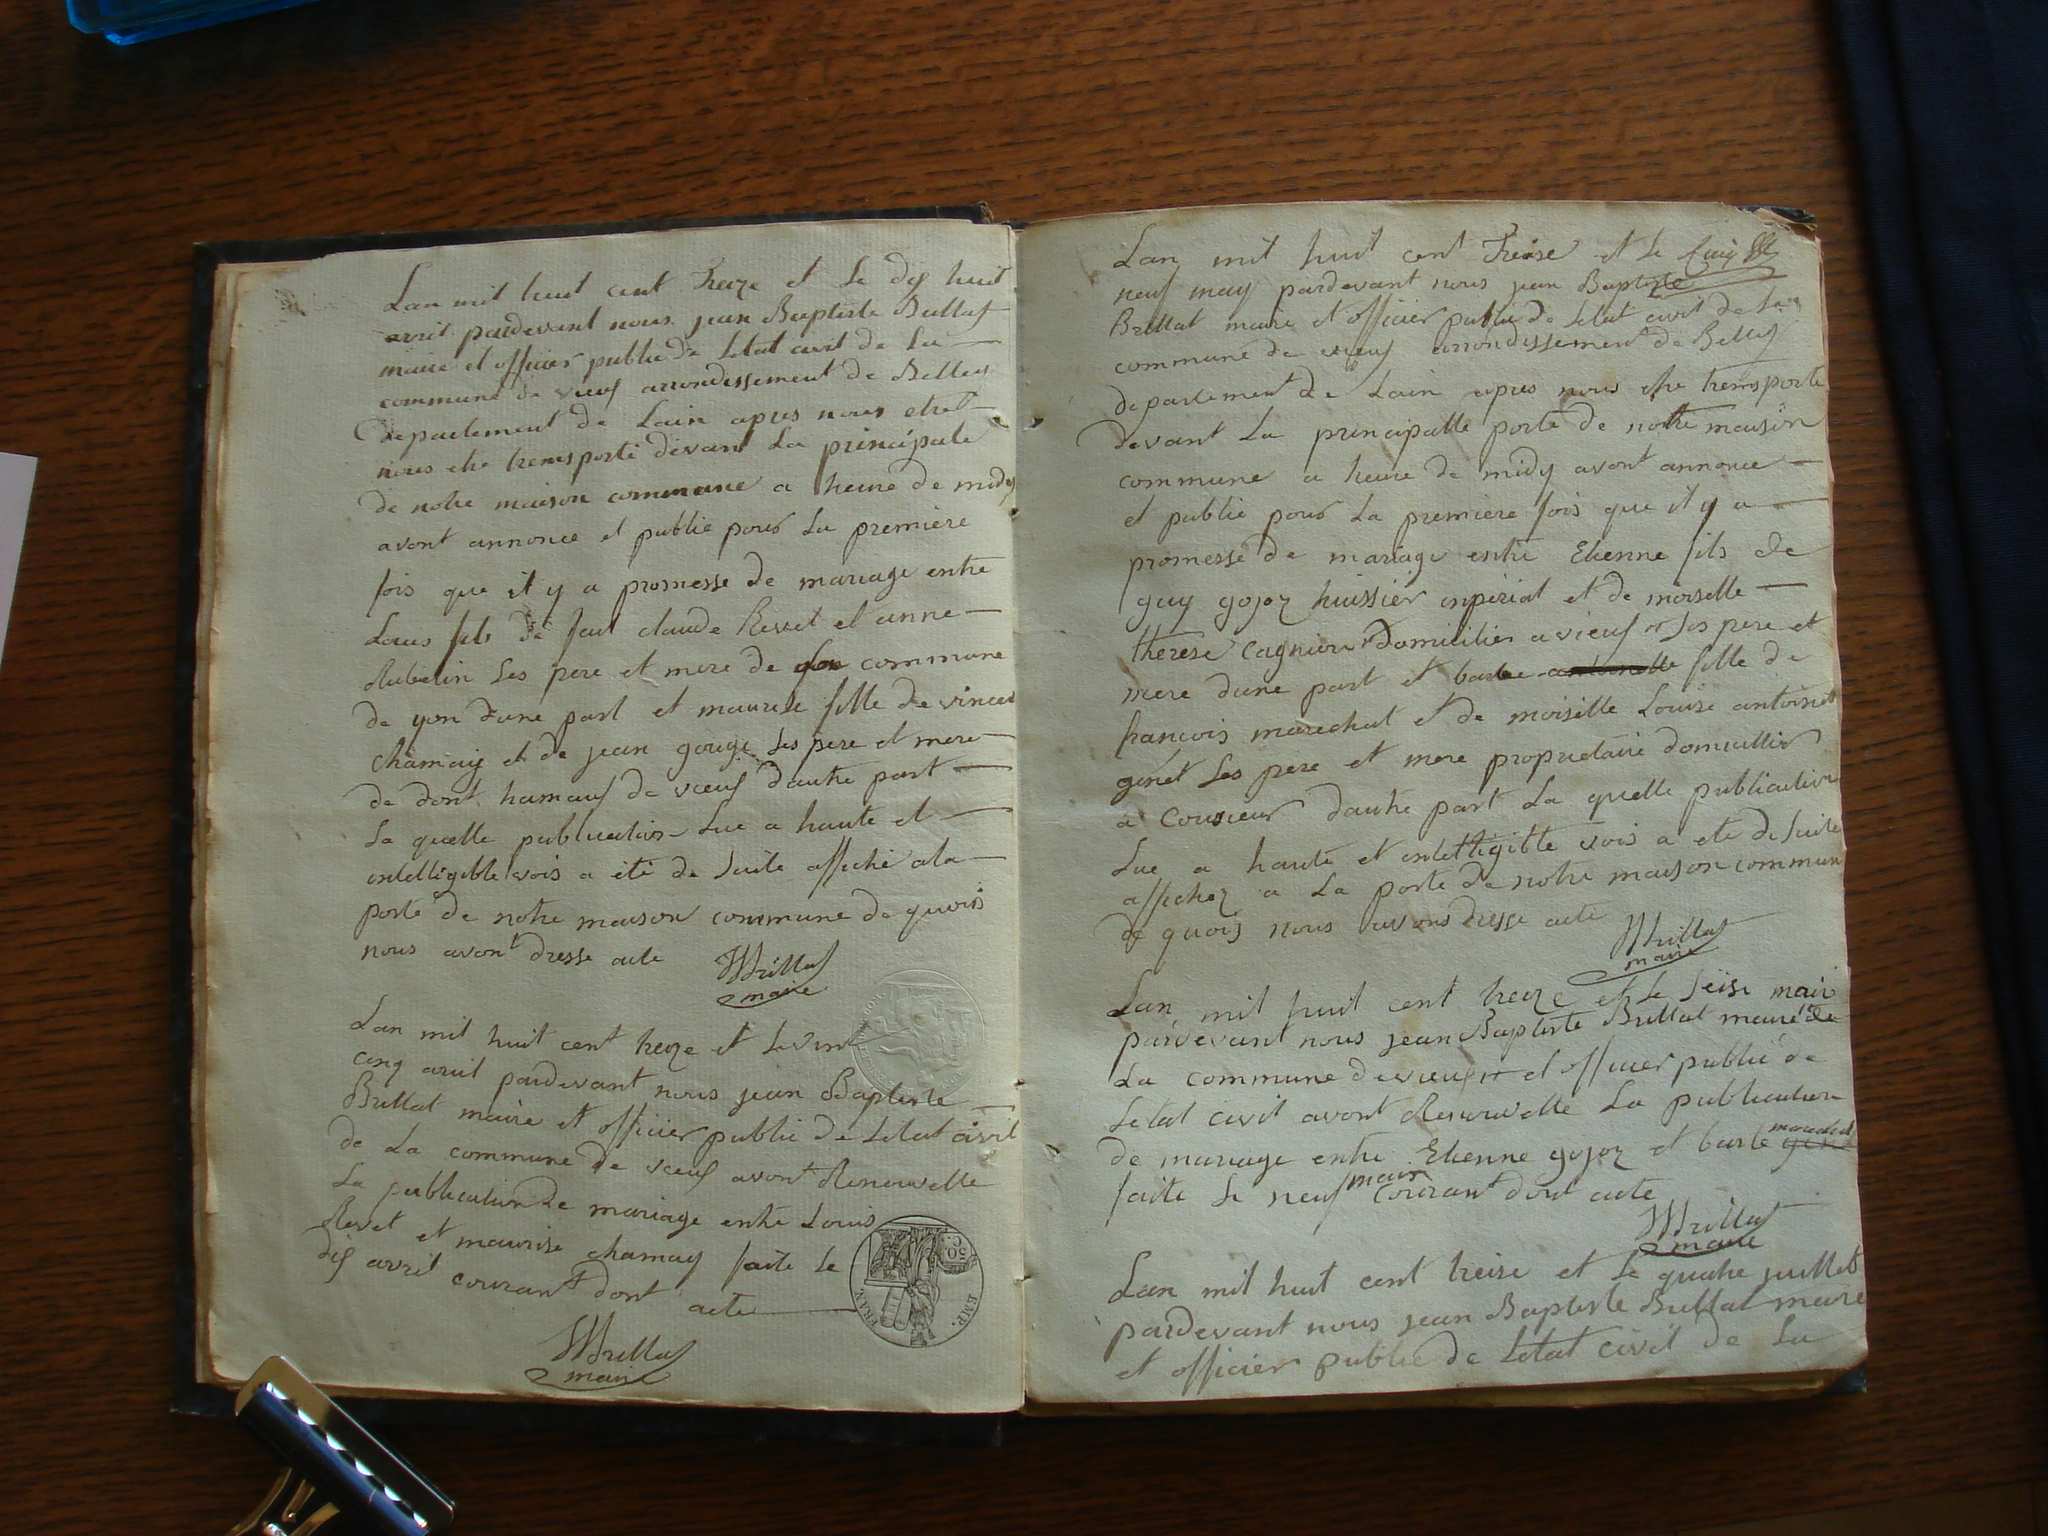 Lan mil huit cent Treize et le dix huit
avril pardevant nous jean Baptiste Brillat
maire et officier public de Letat civil de La
commune de vieuf arrondissement de Belley
departement de Lain apres nous etret
nous etre transporté devant La principale
de notre maison commune a heure de midy
avont annonce et publie pour La premiere
fois que il y a promesse de mariage entre
Louis fils de feut claude Revet et anne
Rubelin Les pere et mere de commune
de yon dune part et maurise fille de vincent
chamay et de jean gouge Les pere et mere
de dont hamaus de vieuf dautre part
La quelle publication Lue a haute et
intelligible vois a eté de suite affiché a la
porte de notre maison commune de quois
nous avont dresse acte JBrillat
maire
Lan mil huit cent treze et Le vint
cinq avril pardevant nous jean Baptiste
Brillat maire et officier public de Letat civil
de La commune de vieuf avont Renouvelle
La publication de mariage entre Louis
Revet et maurise chamay faite Le
dix avril courant dont acte
JBrillat
maire
FRAN. EMP.
50 C.
Lan mil huit cent Treise et Le
neuf may pardevant nous jean Baptiste
Brillat maire et officier public de Letat civil de La
commune de vieuf arrondissement de Belley
departement de Lain apres nous etre transporte
devant La principalle porte de notre maison
commune a heure de midy avont annonce
et publie pour La premiere fois que il y a
promesse de mariage entre Etienne fils de
guy gojoz huissier inperial et de moiselle
therese cagnien Domicilies a vieuf Les pere et
mere dune part et barbe fille de
francois marechal et de moiselle Louise antoinet
genet Les pere et mere proprietaire domicillier
a dautre part La quelle publication
Lue a haute et intelligible vois a ete de suite
affichez a La porte de notre maison commun
de quois nous avons dresse acte JBrillat
maire
Lan mil huit cent treze et Le seise mai
pardevant nous jean Baptiste Brillat maire de
La commune de vieuf et officier public de
Letat civil avont Renouvelle La publication
de mariage entre Etienne gojoz et barbe marechal
faite Le neuf mais courant dont acte
JBrillat
maire
Lan mil huit cent treise et Le quatre juillet
pardevant nous jean Baptiste Brillat maire
et officier public de Letat civil de La